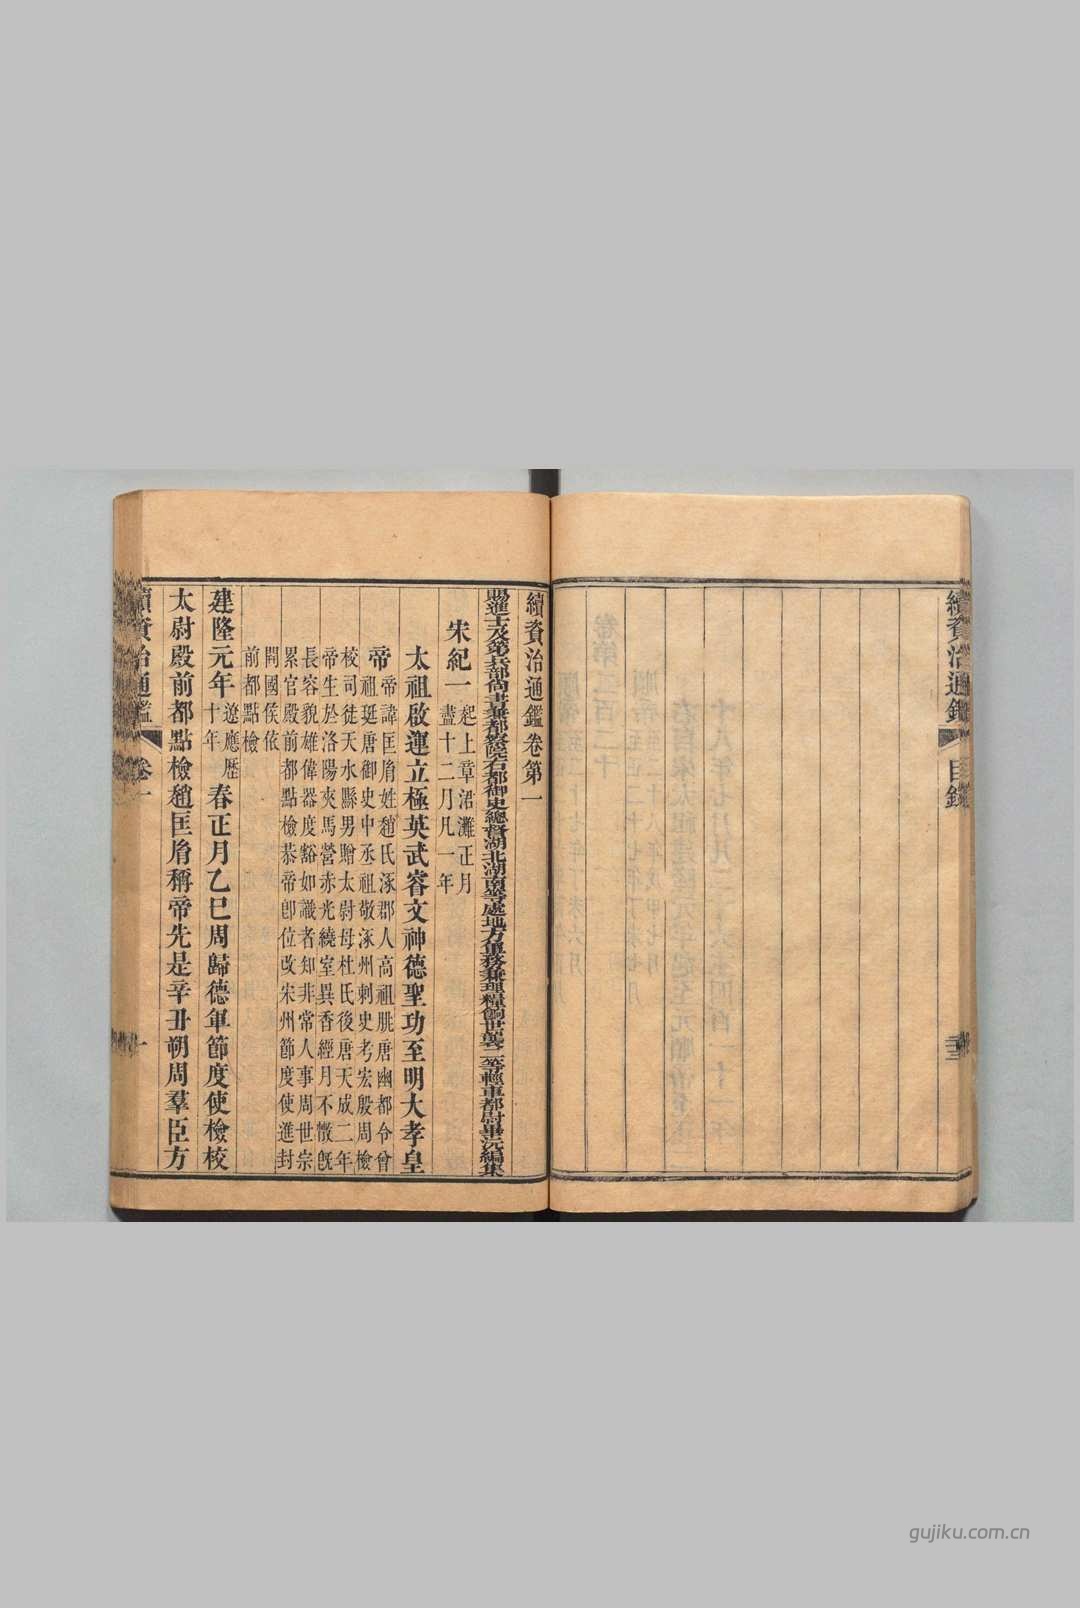 續資治通鑑 目錄
續資治通鑑卷第一
賜進士及第兵部尚書兼都察院右都御史總督湖北湖南等處地方軍務兼理糧餉世襲二等輕車都尉畢沅編集
宋紀一 起上章涒灘正月
盡十二月凡一年
太祖啟運立極英武睿文神德聖功至明大孝皇
帝 帝諱匡胤姓趙氏涿郡人高祖朓唐幽都令曾
祖珽唐御史中丞祖敬涿州刺史考宏殷周檢
校司徒天水縣男贈太尉母杜氏後唐天成二年
帝生於洛陽夾馬營赤光繞室異香經月不散旣
長容貌雄偉器度豁如識者知非常人事周世宗
累官殿前都點檢恭帝卽位改宋州節度使進封
開國侯依
前都點檢
建隆元年 遼應歷
十年 春正月乙巳周歸德軍節度使檢校
太尉殿前都點檢趙匡胤稱帝先是辛丑朔周羣臣方
續資治通鑑 卷一 一
gujiku.com.cn